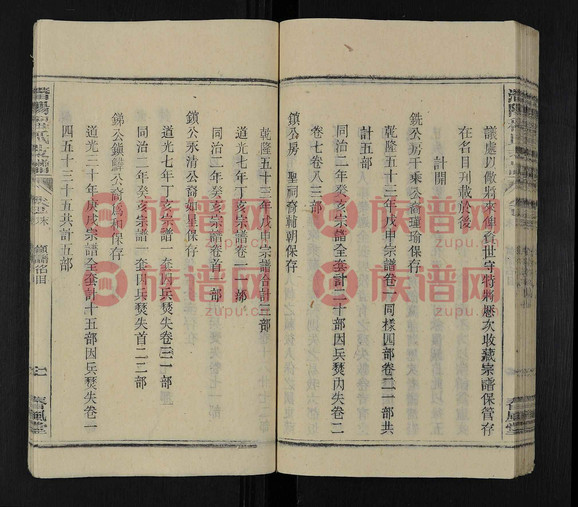 議處以儆將來俾資世守特將歷次收藏宗譜保管存
在名目列載於後
計開
銑公房千乘公裔理瑜保存
乾隆五十三年戊申宗譜卷一同樣四部卷二一部共
計五部
同治二年癸亥宗譜全套計二十部因兵焚內失卷二
卷七卷八三部
鎮公房聖祠裔輔朝保存
乾隆五十三年戊申宗譜各計三部
道光七年丁亥宗譜卷一部
同治二年癸亥宗譜卷首一部
鎮公永清公裔如星保存
道光七年丁亥宗譜一套因兵焚失卷三一部
同治二年癸亥宗譜一套因兵焚失首二三部
銻公鎮鱗公裔為和保存
道光三十年庚戌宗譜全套計十五部因兵焚失卷一
四五十三十五共計五部
春風堂
族谱网
zupu.cn